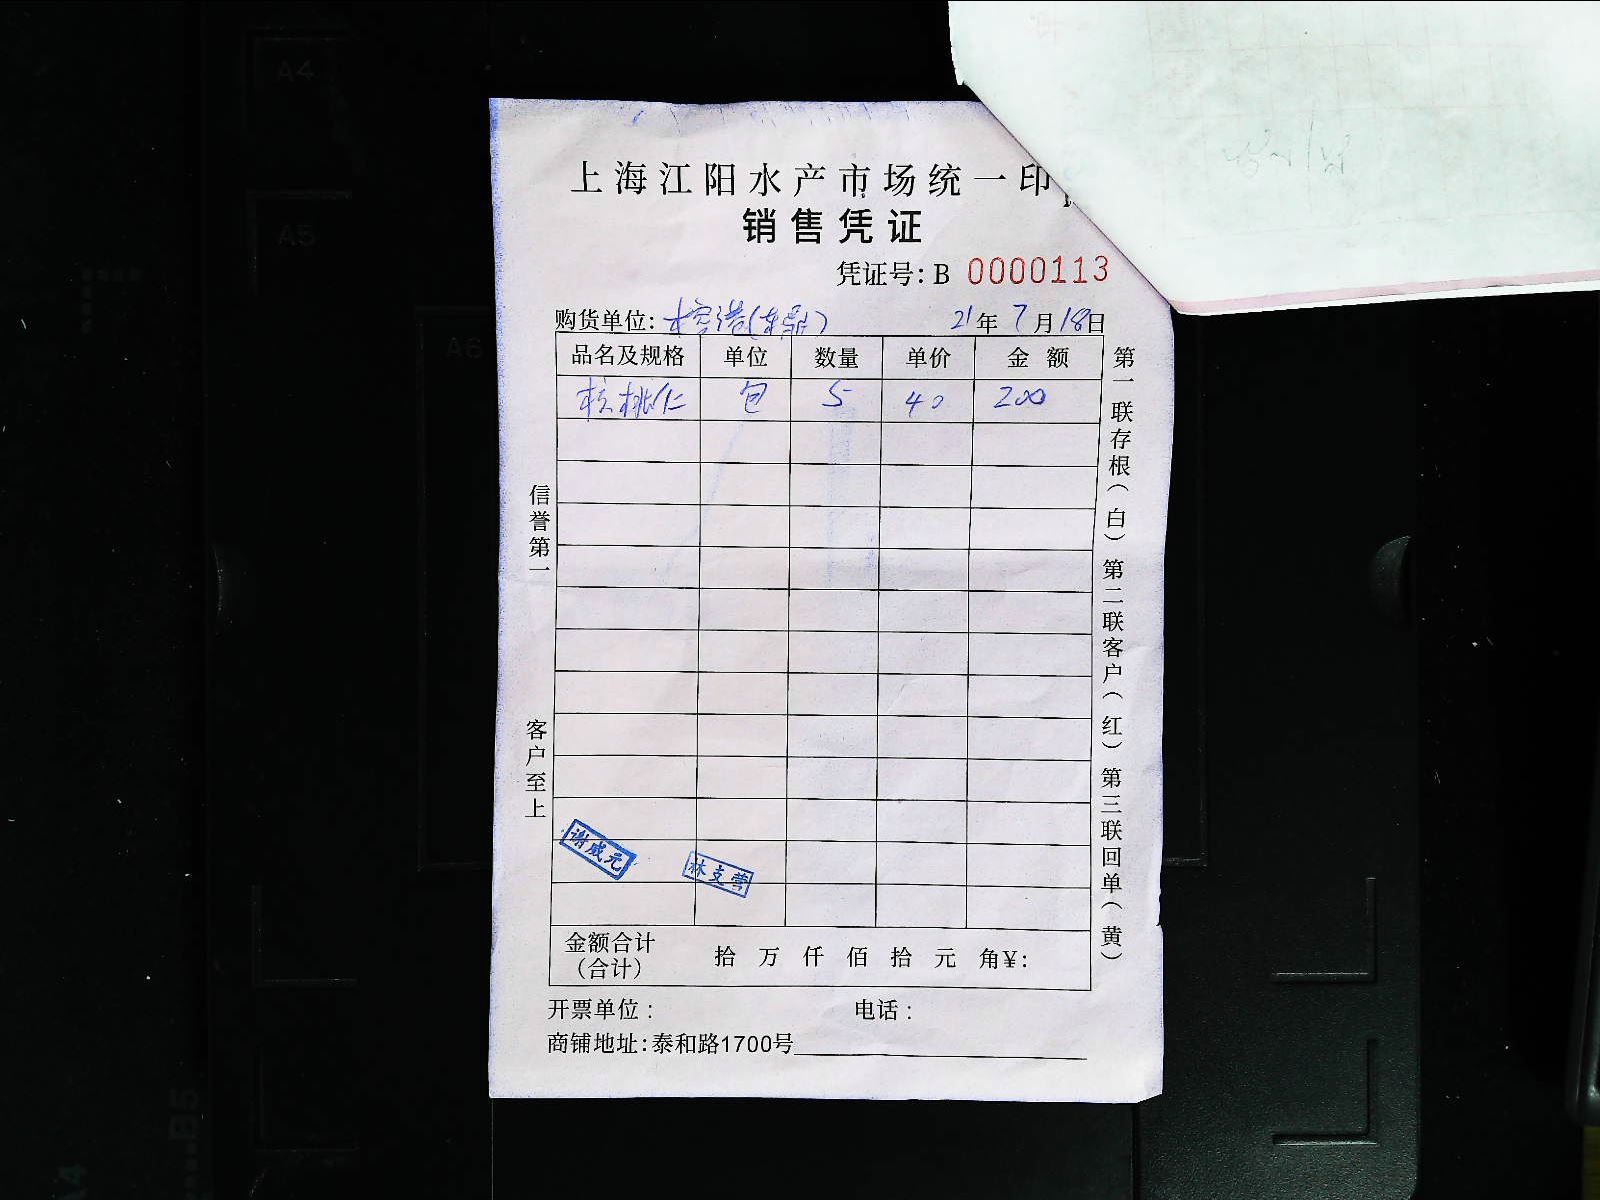 A4
A5
A6
上海江阳水产市场统一印
销售凭证
凭证号：B 0000113
购货单位： 21年7月18日
品名及规格 单位 数量 单价 金额
核桃仁 包 5 40 200
信誉第一
客户至上
第一联存根（白）第二联客户（红）第三联回单（黄）
谢威元
林支营
金额合计
（合计） 拾 万 仟 佰 拾 元 角¥:
开票单位： 电话：
商铺地址：泰和路1700号
B5
A4